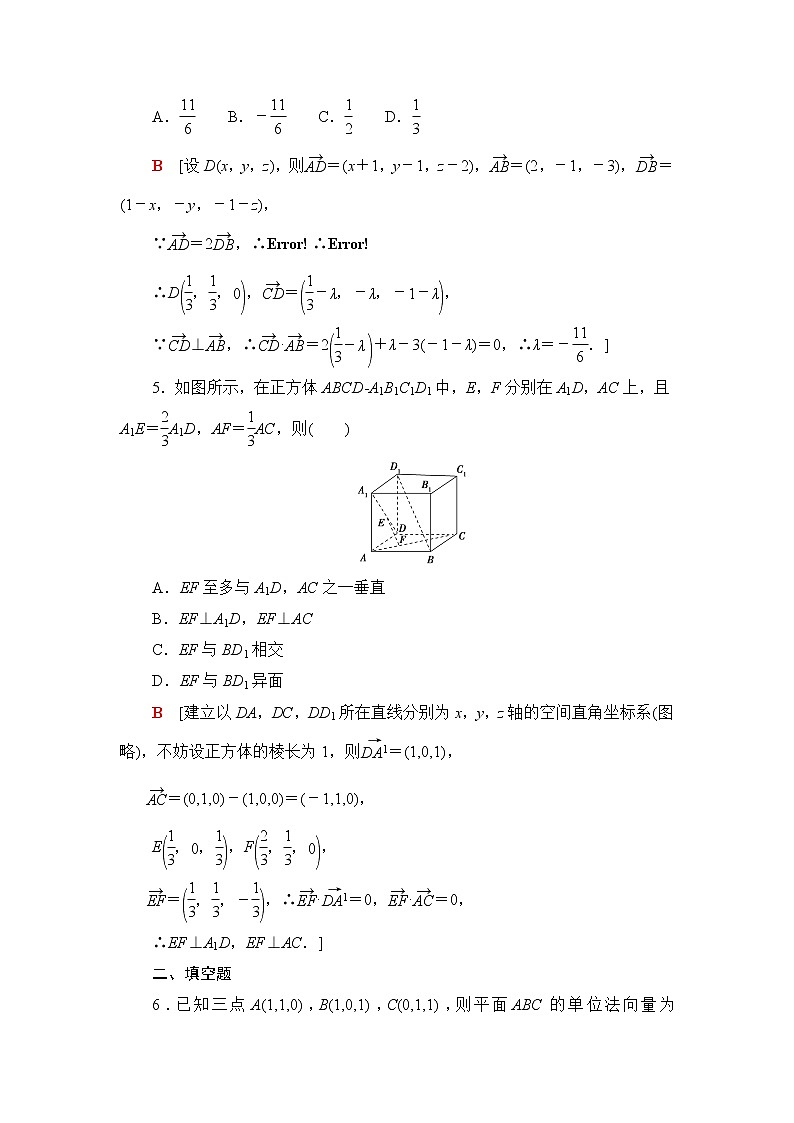 A．11/6　　B．－11/6　　C．1/2　　D．1/3
B　[设 D(x，y，z)，则AD→＝(x＋1，y－1，z－2)，AB→＝(2，－1，－3)，DB→＝
(1－x，－y，－1－z)，
∵AD→＝2DB→，∴Error! ∴Error!
∴D(1/3，1/3，0)，CD→＝(1/3－λ，－λ，－1－λ)，
∵CD→⊥AB→，∴CD→·AB→＝2(1/3－λ)＋λ－3(－1－λ)＝0，∴λ＝－11/6．]
5．如图所示，在正方体 ABCD-A1B1C1D1 中，E，F 分别在 A1D，AC 上，且
A1E＝2/3A1D，AF＝1/3AC，则(　　)
D1
C1
A1
B1
E
D
F
C
A
B
A．EF 至多与 A1D，AC 之一垂直
B．EF⊥A1D，EF⊥AC
C．EF 与 BD1 相交
D．EF 与 BD1 异面
B　[建立以 DA，DC，DD1 所在直线分别为 x，y，z 轴的空间直角坐标系(图
略)，不妨设正方体的棱长为 1，则DA1→＝(1,0,1)，
AC→＝(0,1,0)－(1,0,0)＝(－1,1,0)，
E(1/3，0，1/3)，F(2/3，1/3，0)，
EF→＝(1/3，1/3，－1/3)，∴EF→·DA1→＝0，EF→·AC→＝0，
∴EF⊥A1D，EF⊥AC．]
二、填空题
6．已知三点 A(1,1,0)，B(1,0,1)，C(0,1,1)，则平面 ABC 的单位法向量为